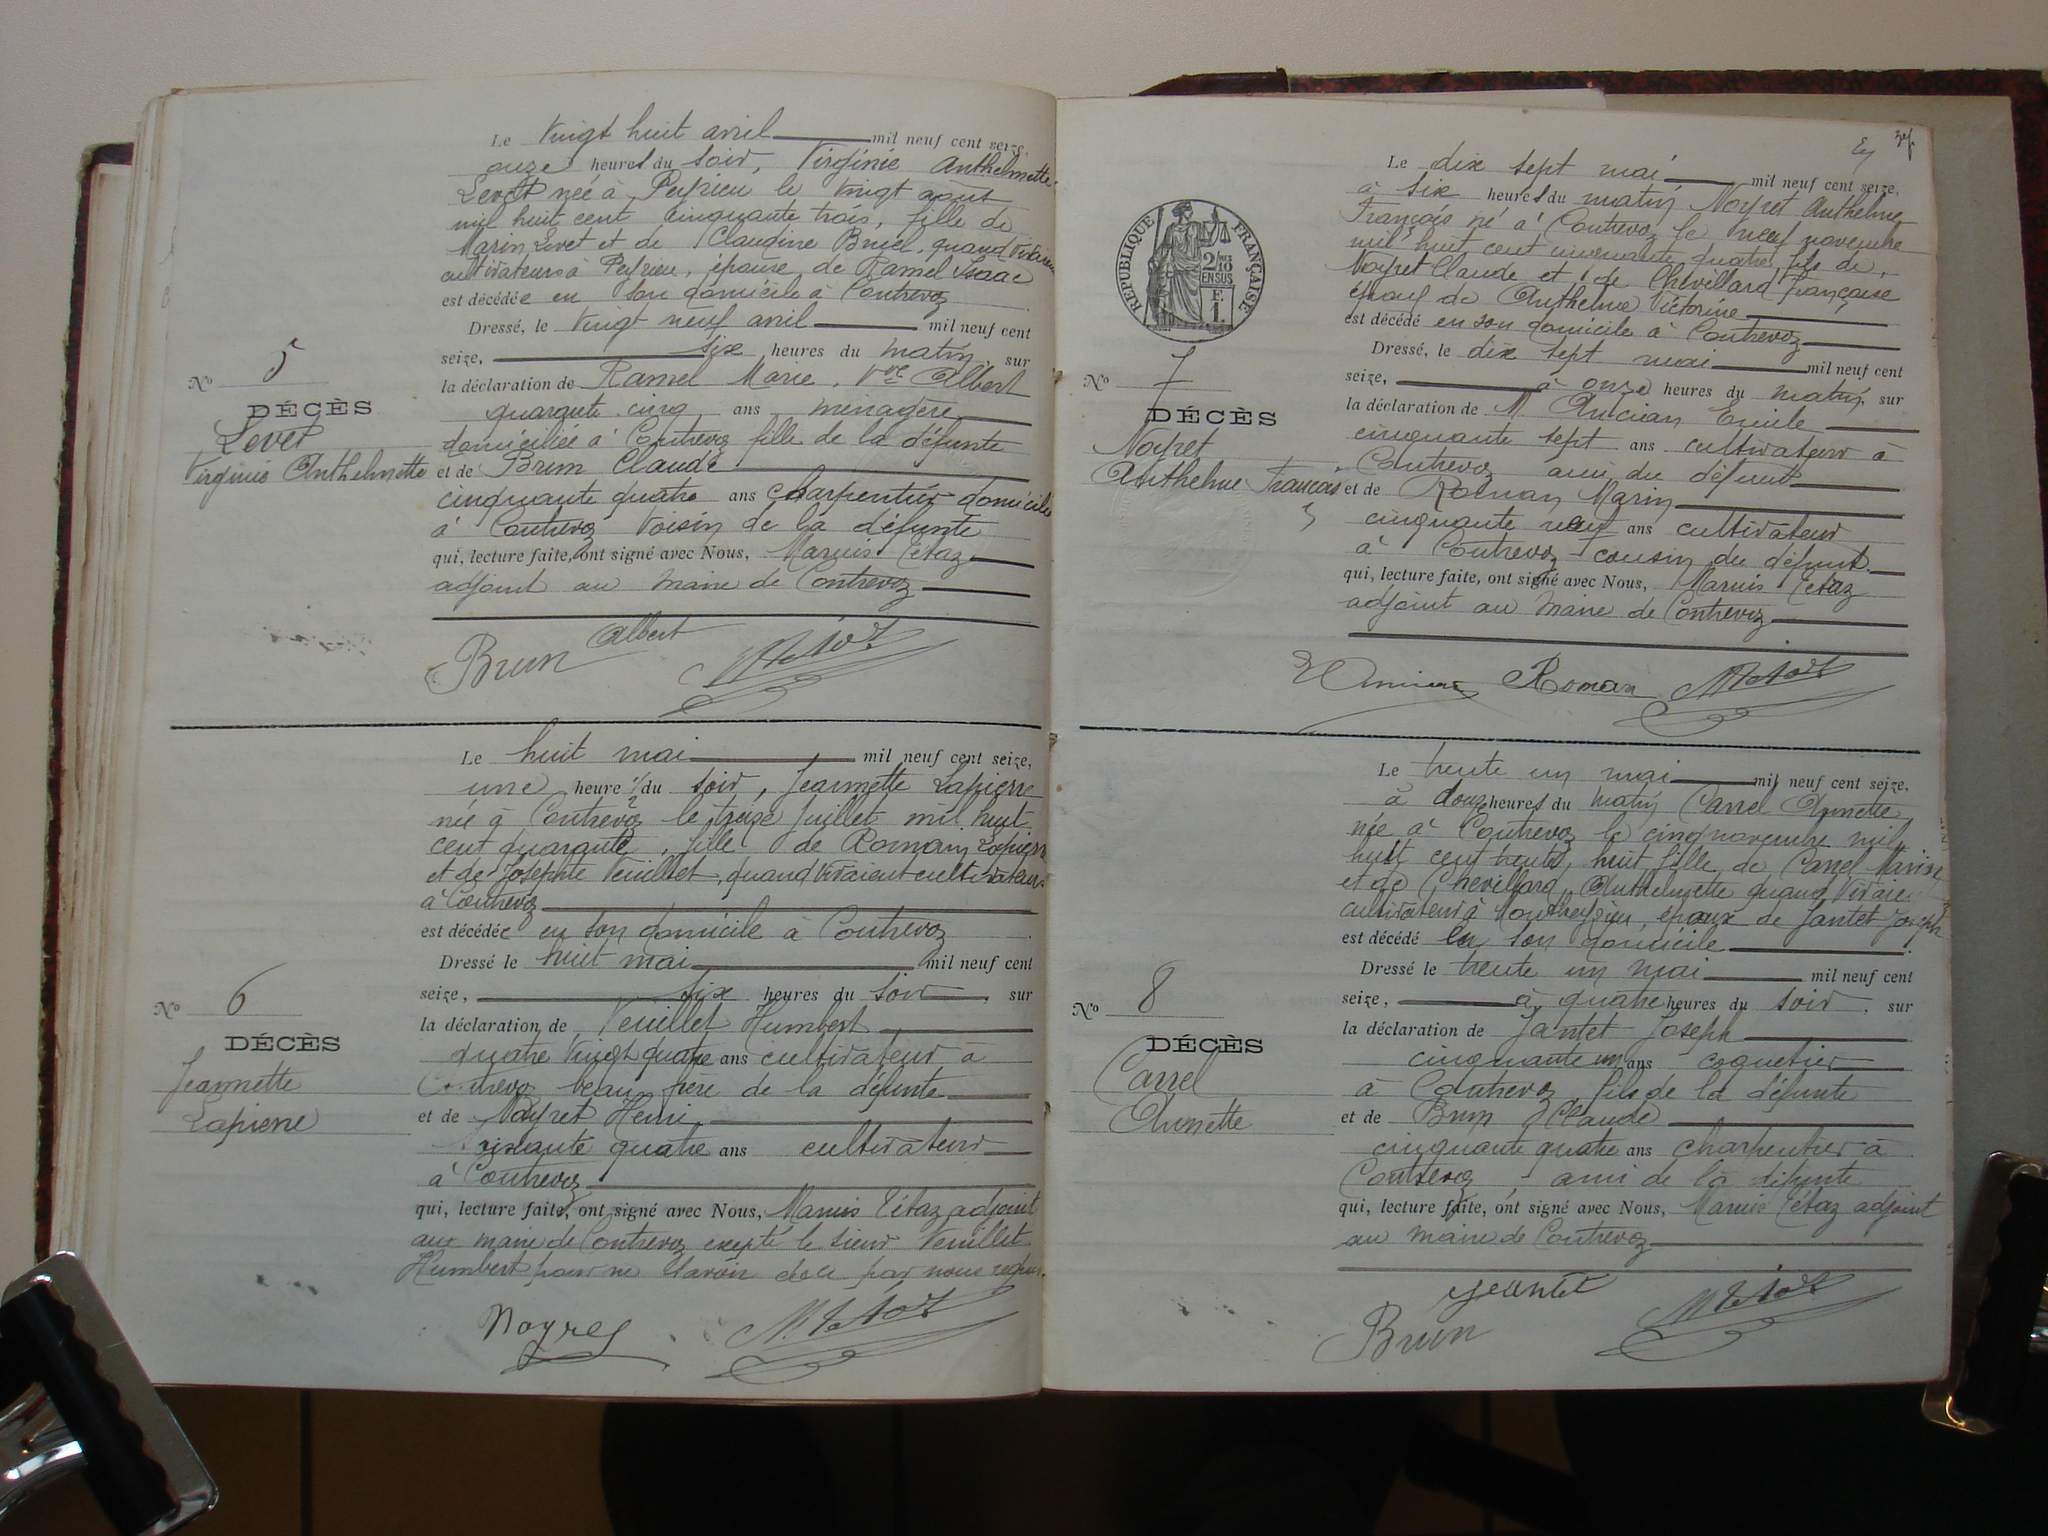 Le vingt huit avril mil neuf cent seize,
onze heures du soir, Virginie Anthelmette
Levet née à Peyrieu le vingt août
mil huit cent cinquante trois, fille de
Marin Levet et de Claudine Bruel, quand vivaient
cultivateurs à Peyrieu, épouse de Ramel Isaac
est décédée en son domicile à Contrevoz
Dressé, le vingt neuf avril mil neuf cent
seize, six heures du matin, sur
la déclaration de Ramel Marie, Vve Albert
quarante cinq ans ménagère
domiciliée à Contrevoz fille de la défunte
et de Brun Claude
cinquante quatre ans charpentier domicilié
à Contrevoz voisin de la défunte
qui, lecture faite, ont signé avec Nous, Marius Tétaz
adjoint au maire de Contrevoz
No 5
DÉCÈS
Levet
Virginie Anthelmette
Albert
Brun
Le huit mai mil neuf cent seize,
une heure 1/2 du soir, Jeannette Lapierre
née à Contrevoz le treize Juillet mil huit
cent quarante, fille de Romain Lapierre
et de Josephte Veuillet, quand vivaient cultivateurs
à Contrevoz
est décédée en son domicile à Contrevoz
Dressé le huit mai mil neuf cent
seize, six heures du soir, sur
la déclaration de Veuillet Humbert
quatre vingt quatre ans cultivateur à
Contrevoz beau frère de la défunte
et de Noyret Henri
soixante quatre ans cultivateur
à Contrevoz
qui, lecture faite, ont signé avec Nous, Marius Tétaz adjoint
au maire de Contrevoz excepté le sieur Veuillet
Humbert pour ne savoir de ce par nous requis.
No 6
DÉCÈS
Jeannette
Lapierre
Noyret
RÉPUBLIQUE FRANÇAISE
2/10 EN SUS
F. 1.
Le dix sept mai mil neuf cent seize,
à six heures du matin Noyret Anthelme
François né à Contrevoz le neuf novembre
mil huit cent cinquante quatre fils de
Noyret Claude et de Chevillard Françoise
époux de Anthelme Victorine
est décédé en son domicile à Contrevoz
Dressé, le dix sept mai mil neuf cent
seize, à onze heures du matin, sur
la déclaration de M. Ancian Emile
cinquante sept ans cultivateur à
Contrevoz ami du défunt
et de Roman Marin
cinquante neuf ans cultivateur
à Contrevoz cousin du défunt.
qui, lecture faite, ont signé avec Nous, Marius Tétaz
adjoint au maire de Contrevoz
No 7
DÉCÈS
Noyret
Anthelme François
Roman
Le trente un mai mil neuf cent seize,
à douze heures du matin Carrel Annette
née à Contrevoz le cinq novembre mil
huit cent trente huit fille de Carrel Marin
et de Chevillard Anthelmette quand vivaient
cultivateurs à épouse de Jantet Joseph
est décédé en son domicile
Dressé le trente un mai mil neuf cent
seize, à quatre heures du soir, sur
la déclaration de Jantet Joseph
cinquante un ans coquetier
à Contrevoz, fils de la défunte
et de Brun Claude
cinquante quatre ans charpentier à
Contrevoz, ami de la défunte
qui, lecture faite, ont signé avec Nous, Marius Tétaz adjoint
au maire de Contrevoz
No 8
DÉCÈS
Carrel
Annette
Jeantet
Brun